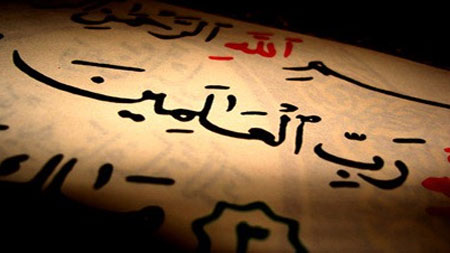 سْمِ اللَّهِ الرَّحْمٰنِ
رَبِّ الْعَالَمِينَ